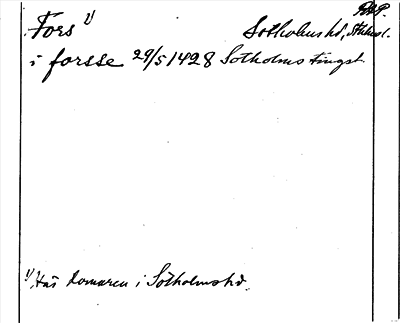 Fors 1)
Sotholms hd, Sthlms l.
i forsse 29/5 1428 Sotholms tingst
1) Här domaren i Sotholms hd.